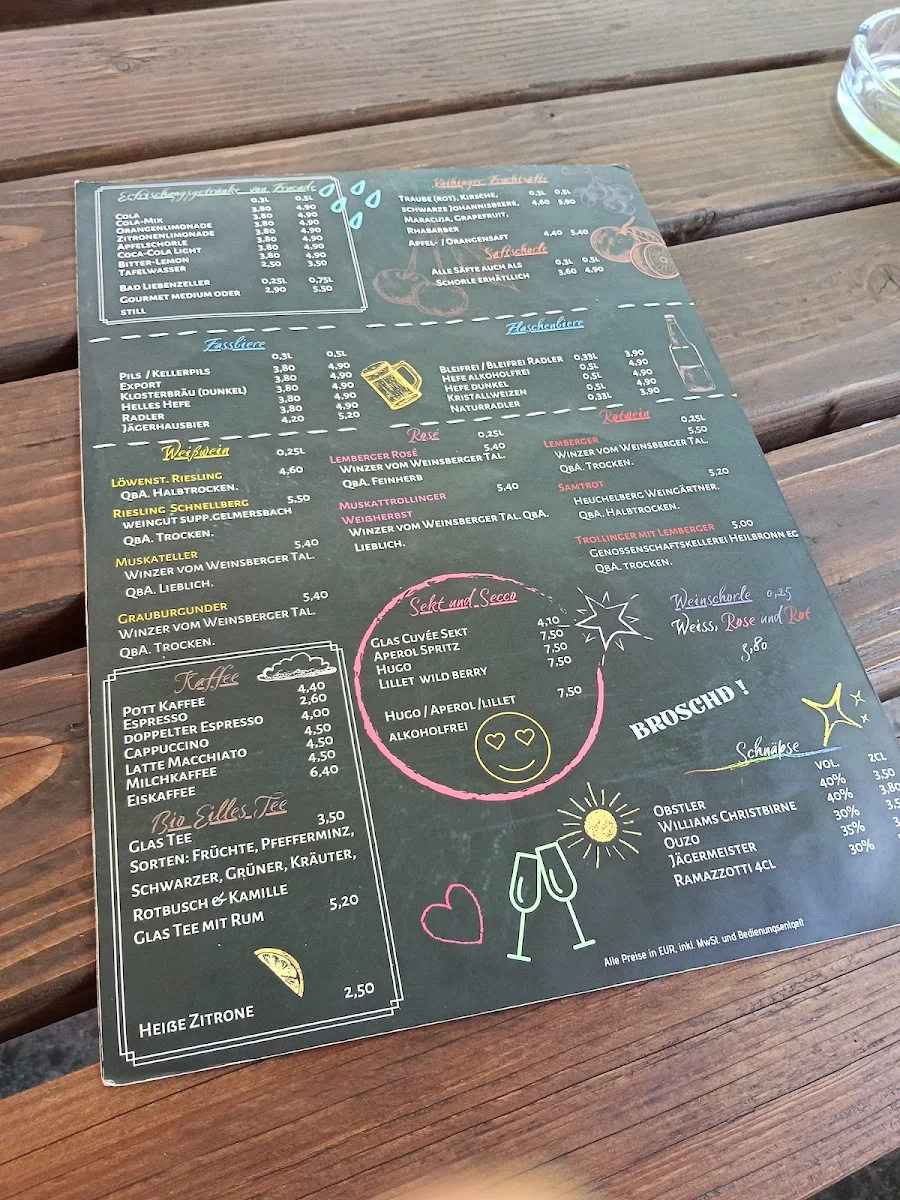 Erfrischungsgetränke von Zucade
0,3L 0,5L
Cola 3,80 4,90
Cola-Mix 3,80 4,90
Orangenlimonade 3,80 4,90
Zitronenlimonade 3,80 4,90
Apfelschorle 3,80 4,90
Coca-Cola Light 3,80 4,90
Bitter-Lemon 3,80 4,90
Tafelwasser 2,50 3,50
Bad Liebenzeller 0,25L 0,75L
Gourmet medium oder 2,90 5,50
still
Vaihinger Fruchtsäfte
Traube (rot), Kirsche, 0,3L 0,5L
schwarze Johannisbeere, 4,60 5,90
Maracuja, Grapefruit,
Rhabarber
Apfel- / Orangensaft 4,40 5,40
Saftschorle
Alle Säfte auch als 0,3L 0,5L
Schorle erhätlich 3,60 4,90
Fassbiere
0,3L 0,5L
Pils / Kellerpils 3,80 4,90
Export 3,80 4,90
Klosterbräu (dunkel) 3,80 4,90
Helles Hefe 3,80 4,90
Radler 3,80 4,90
Jägerhausbier 4,20 5,20
Flaschenbiere
Bleifrei / Bleifrei Radler 0,33L 3,90
Hefe alkoholfrei 0,5L 4,90
Hefe dunkel 0,5L 4,90
Kristallweizen 0,5L 4,90
Naturradler 0,33L 3,90
Weißwein 0,25L
Löwenst. Riesling 4,60
QbA. Halbtrocken.
Riesling Schnellberg 5,50
weingut supp.gelmersbach
QbA. Trocken.
Muskateller 5,40
Winzer vom Weinsberger Tal.
QbA. Lieblich.
Grauburgunder 5,40
Winzer vom Weinsberger Tal.
QbA. Trocken.
Rosé 0,25L
Lemberger Rosé 5,40
Winzer vom Weinsberger Tal.
QbA. Feinherb
Muskattrollinger 5,40
Weißherbst
Winzer vom Weinsberger Tal. QbA.
Lieblich.
Rotwein 0,25L
Lemberger 5,50
Winzer vom Weinsberger Tal.
QbA. Trocken.
Samtrot 5,20
Heuchelberg Weingärtner.
QbA. Halbtrocken.
Trollinger mit Lemberger 5,00
Genossenschaftskellerei Heilbronn eG
QbA. trocken.
Weinschorle 0,25
Weiss, Rose und Rot
3,80
Sekt und Secco
Glas Cuvée Sekt 4,10
Aperol Spritz 7,50
Hugo 7,50
Lillet wild berry 7,50
Hugo / Aperol /lillet 7,50
alkoholfrei
Kaffee
Pott Kaffee 4,40
Espresso 2,60
doppelter Espresso 4,00
Cappuccino 4,50
Latte Macchiato 4,50
Milchkaffee 4,50
Eiskaffee 6,40
Bio Eilles Tee
Glas Tee 3,50
Sorten: Früchte, Pfefferminz,
Schwarzer, Grüner, Kräuter,
Rotbusch & Kamille
Glas Tee mit Rum 5,20
Heiße Zitrone 2,50
BROSCHD !
Schnäpse
Vol. 2cl
Obstler 40% 3,50
Williams Christbirne 40% 3,80
Ouzo 30%
Jägermeister 35%
Ramazzotti 4cl 30%
Alle Preise in EUR, inkl. MwSt. und Bedienungsentgelt